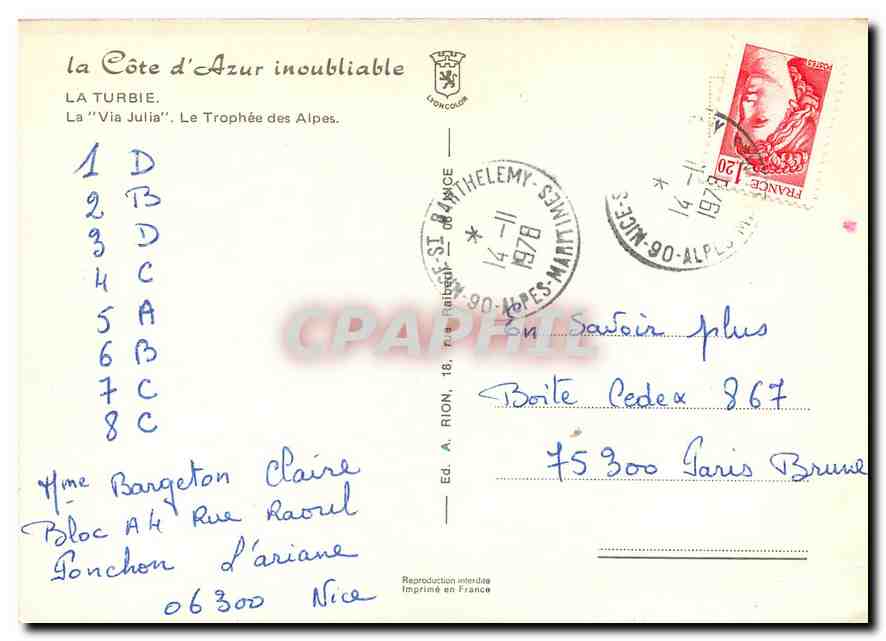 la Côte d'Azur inoubliable
LA TURBIE.
La "Via Julia". Le Trophée des Alpes.
LYONCOLOR
1 D
2 B
3 D
4 C
5 A
6 B
7 C
8 C
Mme Bargeton Claire
Bloc A4 Rue Raoul
Ponchon L'ariane
06300 Nice
Ed. A. RION, 18, rue Raiberti — 06 NICE —
Reproduction interdite
Imprimé en France
NICE-ST BARTHELEMY-
* 14-11
1978
06-ALPES-MARITIMES
* 14-11
1978
NICE-S
06-ALPES-M
POSTES
1,20
FRANCE
CPAPHIL
En savoir plus
Boite Cedex 867
75300 Paris Brune